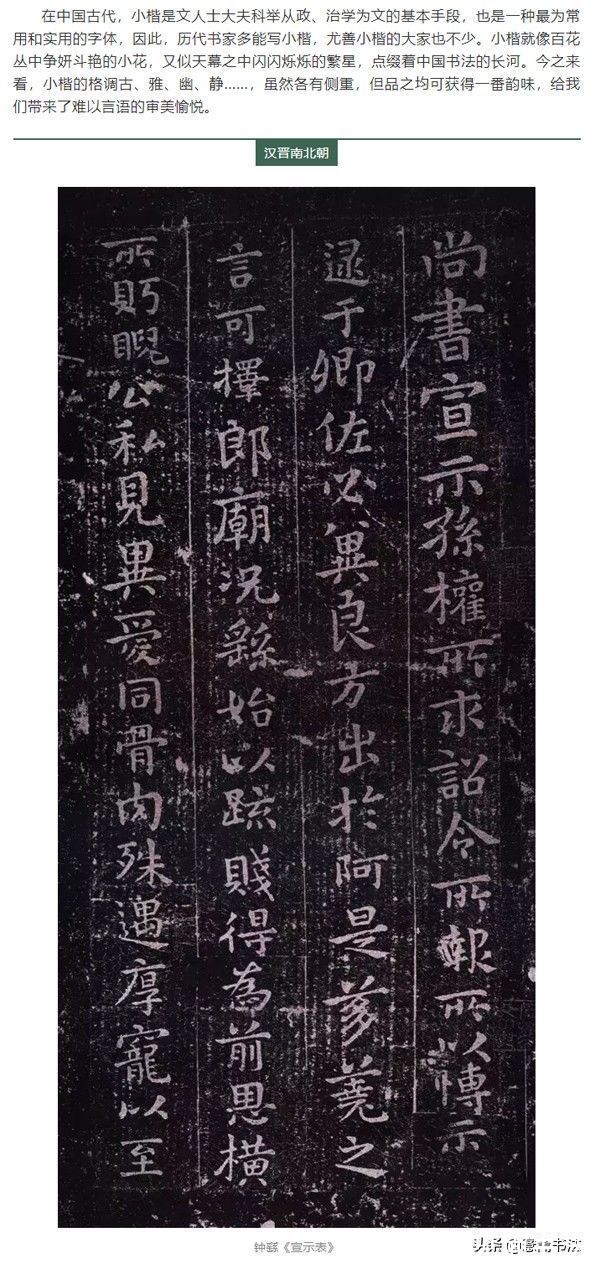 在中国古代，小楷是文人士大夫科举从政、治学为文的基本手段，也是一种最为常
用和实用的字体，因此，历代书家多能写小楷，尤善小楷的大家也不少。小楷就像百花
丛中争妍斗艳的小花，又似天幕之中闪闪烁烁的繁星，点缀着中国书法的长河。今之来
看，小楷的格调古、雅、幽、静……，虽然各有侧重，但品之均可获得一番韵味，给我
们带来了难以言语的审美愉悦。
汉晋南北朝
尚書宣示孫權所求詔令所報所以博示
逮于卿佐必冀良方出於阿是芻蕘之
言可擇郎廟況繇始以疏賤得為前恩橫
所眄睨公私見異愛同骨肉殊遇厚寵以至
钟繇《宣示表》
头条 书法